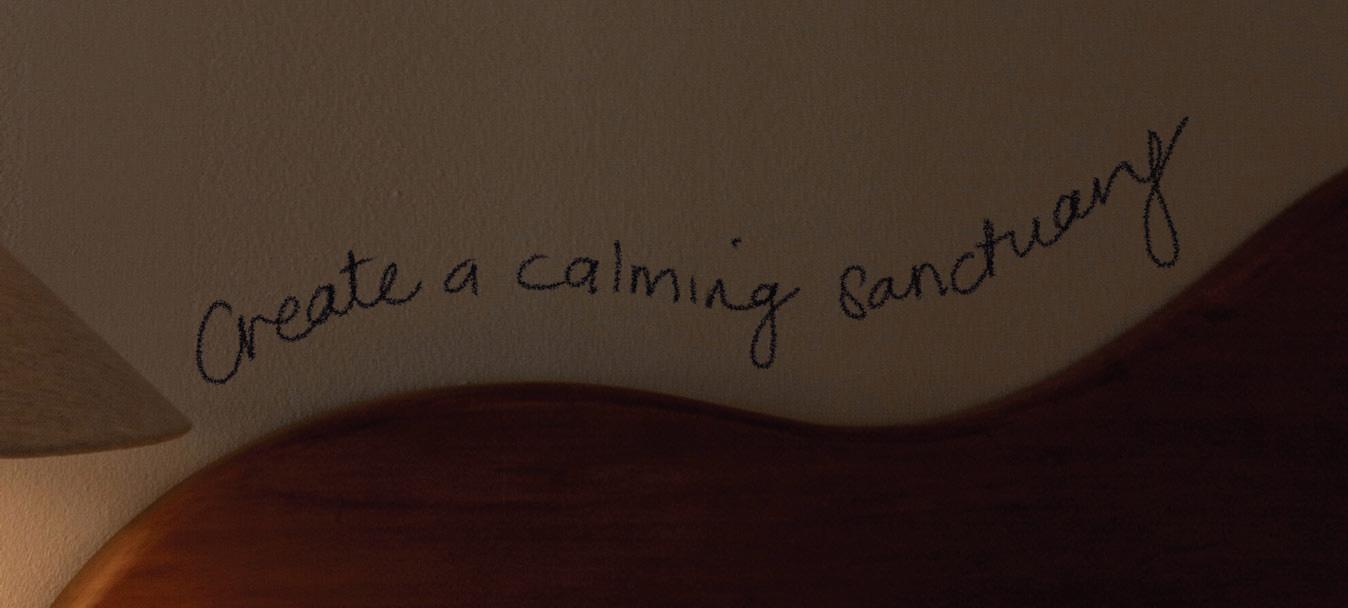 Create a calming sanctuary